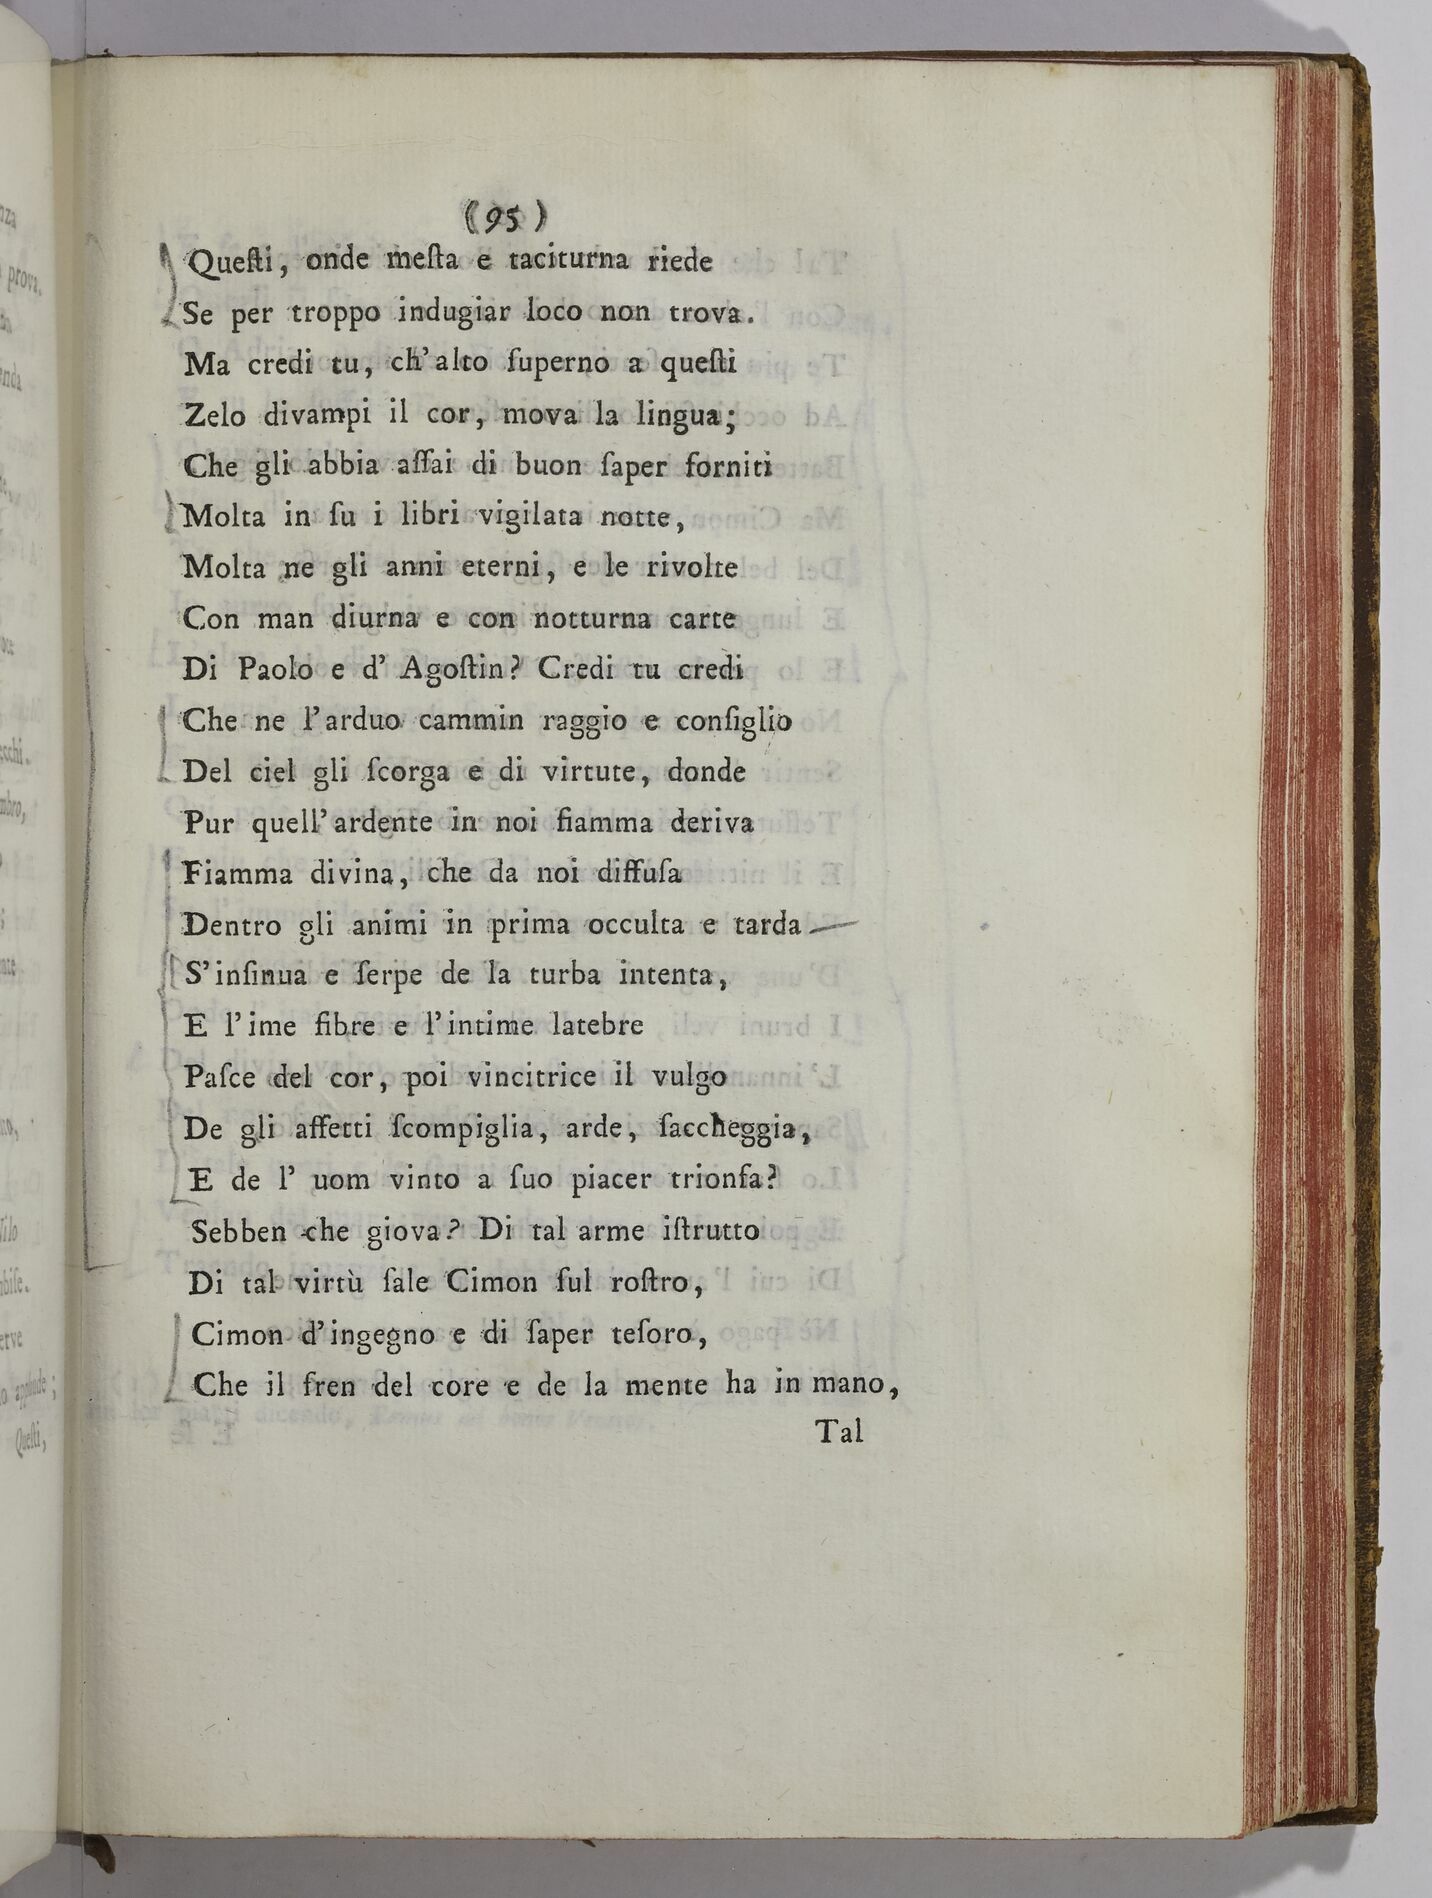 (95)
Queſti, onde meſta e taciturna riede
Se per troppo indugiar loco non trova.
Ma credi tu, ch'alto ſuperno a queſti
Zelo divampi il cor, mova la lingua;
Che gli abbia aſſai di buon ſaper forniti
Molta in ſu i libri vigilata notte,
Molta ne gli anni eterni, e le rivolte
Con man diurna e con notturna carte
Di Paolo e d' Agoſtin? Credi tu credi
Che ne l'arduo cammin raggio e conſiglio
Del ciel gli ſcorga e di virtute, donde
Pur quell'ardente in noi fiamma deriva
Fiamma divina, che da noi diffuſa
Dentro gli animi in prima occulta e tarda
S'inſinua e ſerpe de la turba intenta,
E l'ime fibre e l'intime latebre
Paſce del cor, poi vincitrice il vulgo
De gli affetti ſcompiglia, arde, ſaccheggia,
E de l' uom vinto a ſuo piacer trionfa?
Sebben che giova? Di tal arme iſtrutto
Di tal virtù ſale Cimon ſul roſtro,
Cimon d'ingegno e di ſaper teſoro,
Che il fren del core e de la mente ha in mano,
Tal